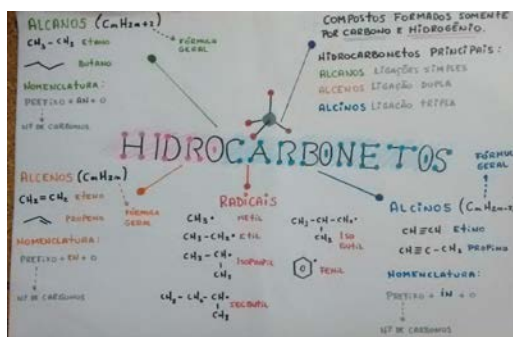 ALCANOS (CmH2m+2)
FÓRMULA
GERAL
CH3 - CH3 ETANO
BUTANO
NOMENCLATURA:
PREFIXO + AN + O
Nº DE CARBONOS
COMPOSTOS FORMADOS SOMENTE
POR CARBONO E HIDROGÊNIO.
HIDROCARBONETOS PRINCIPAIS:
ALCANOS LIGAÇÕES SIMPLES
ALCENOS LIGAÇÃO DUPLA
ALCINOS LIGAÇÃO TRIPLA
HIDROCARBONETOS
ALCENOS (CmH2m)
FÓRMULA
GERAL
CH2=CH2 ETENO
PROPENO
NOMENCLATURA:
PREFIXO + EN + O
Nº DE CARBONOS
RADICAIS
CH3• METIL
CH3-CH2• ETIL
CH3-CH• ISOPROPIL
CH3
CH3-CH2-CH•
CH3
SECBUTIL
CH3-CH-CH2•
CH3
ISO
BUTIL
FENIL
FÓRMULA
GERAL
ALCINOS (CmH2m-2)
CH≡CH ETINO
CH≡C-CH3 PROPINO
NOMENCLATURA:
PREFIXO + IN + O
Nº DE CARBONOS